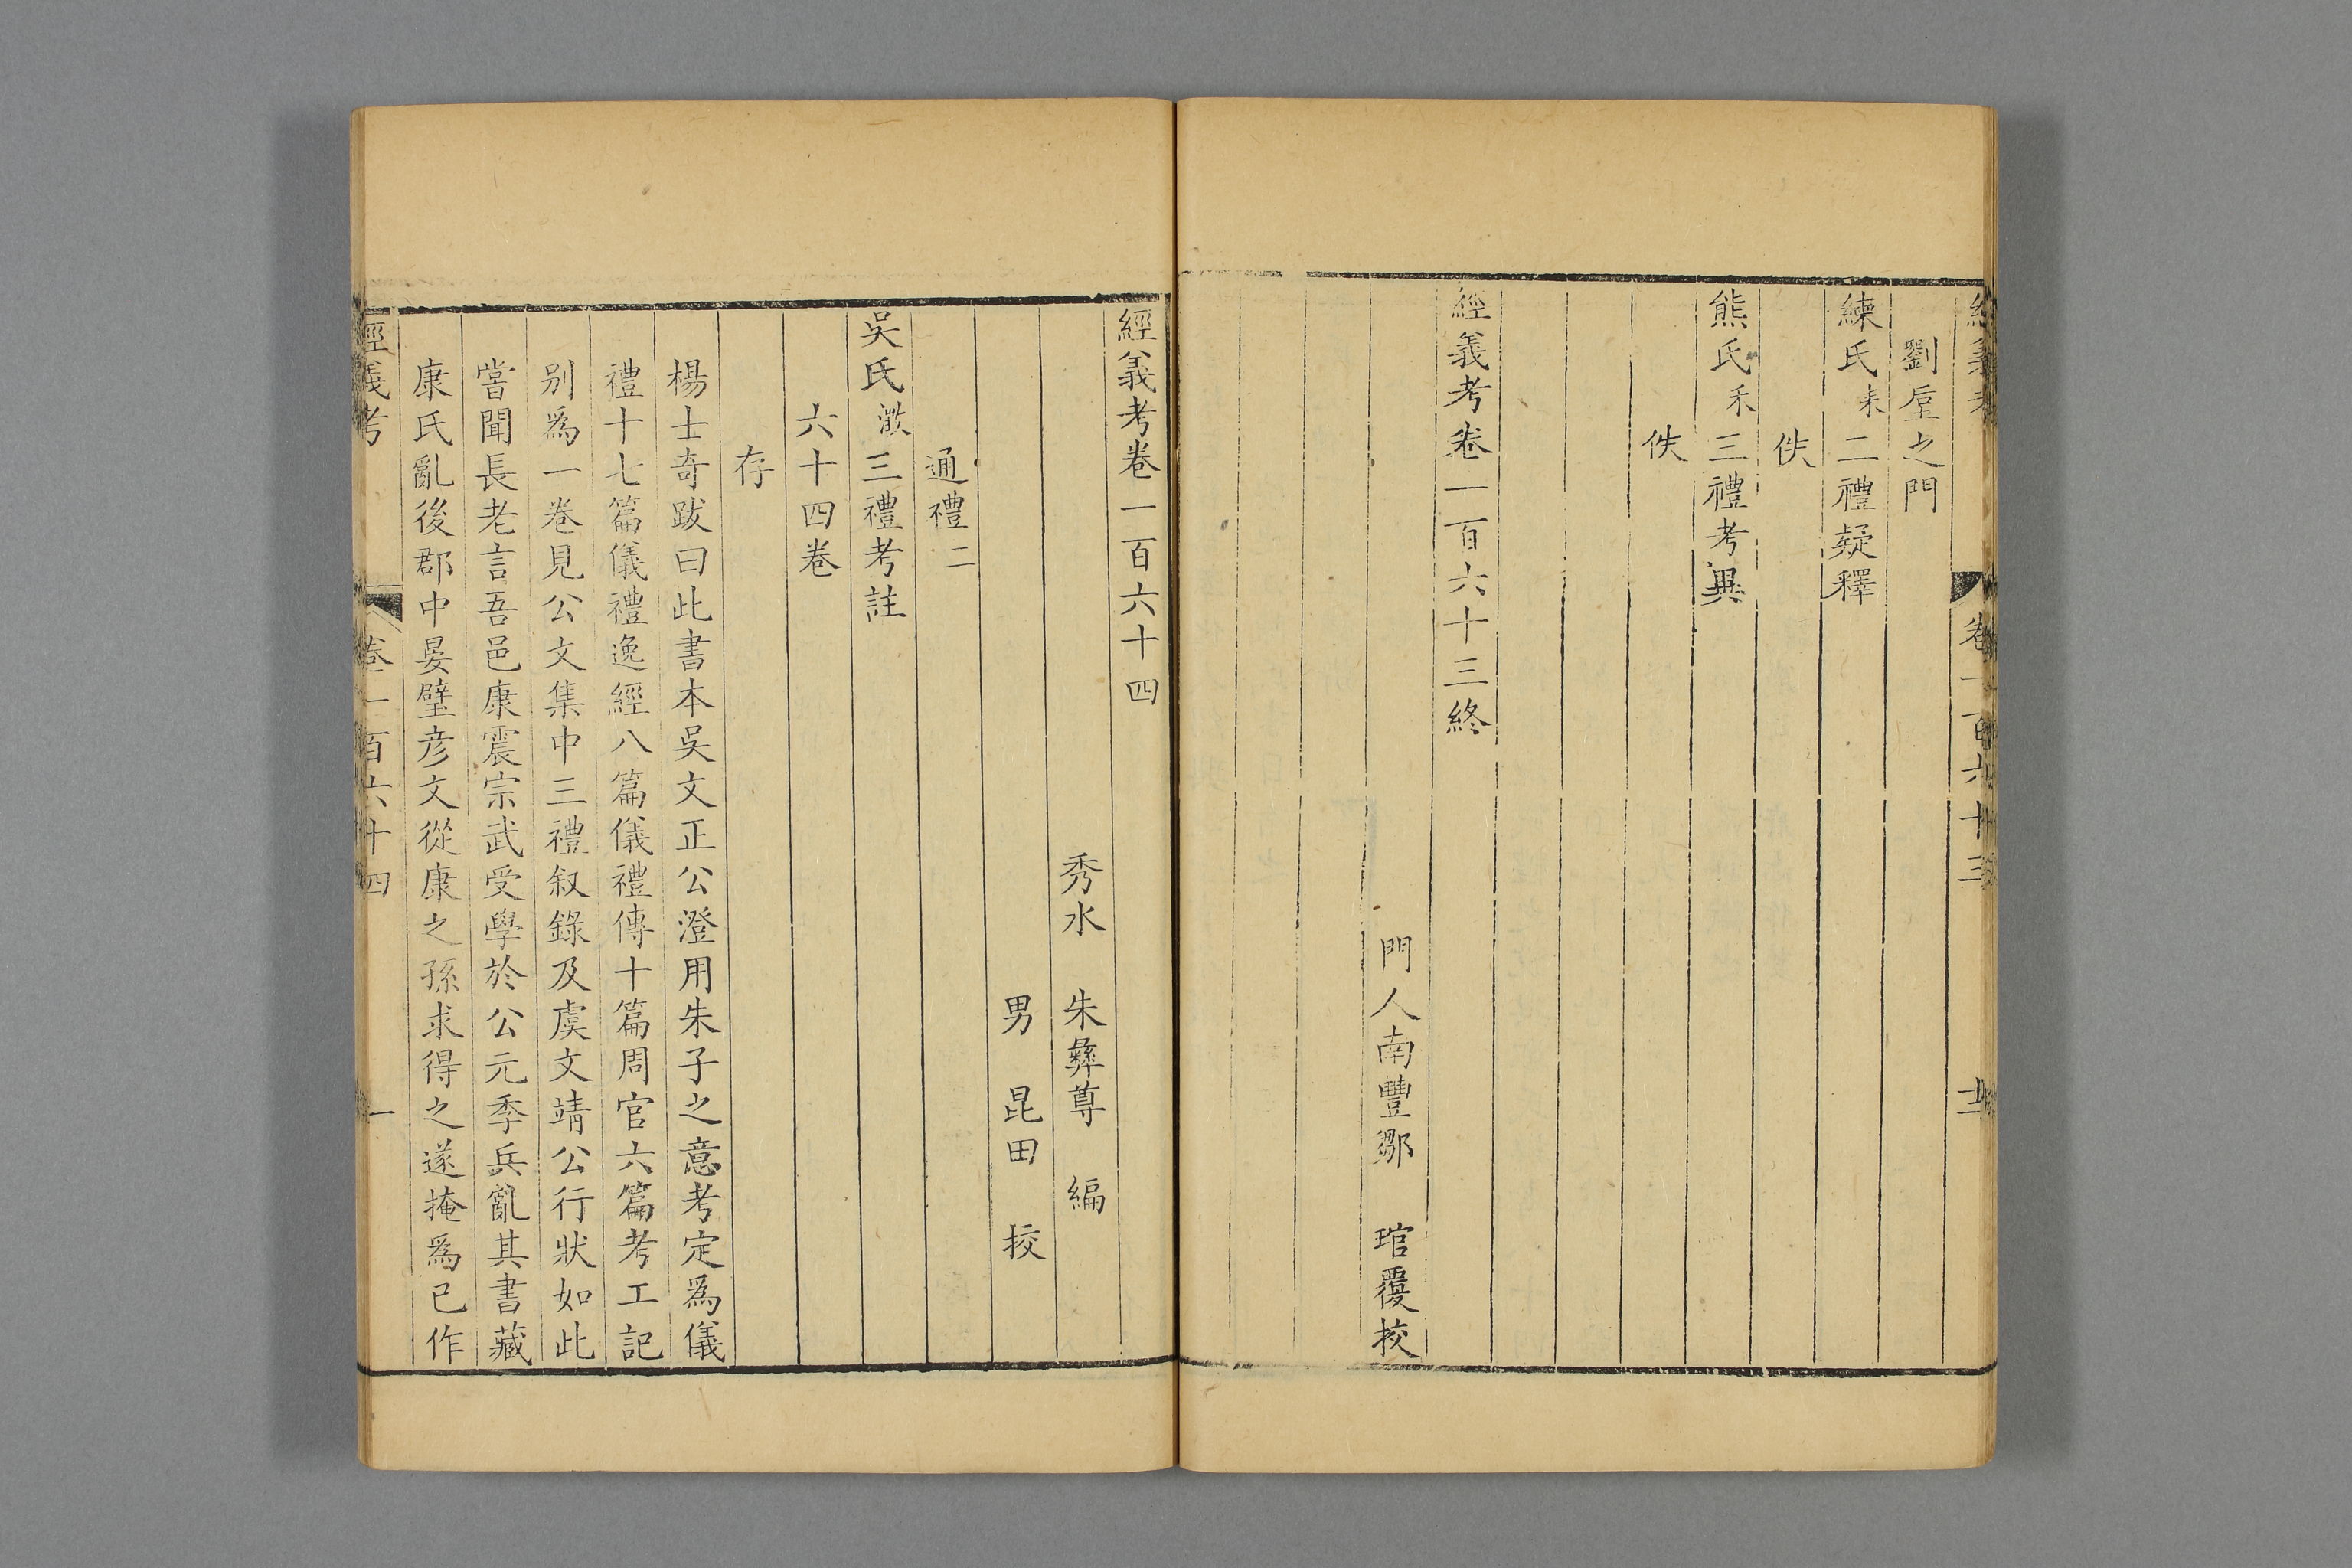 經義考 卷一百六十三
劉垕之門
練氏耒二禮疑釋
佚
熊氏禾三禮考異
佚
經義考卷一百六十三終
門人南豐鄒 琯覆挍
經義考卷一百六十四
秀水 朱彝尊 編
男 昆田 挍
通禮二
吳氏澂三禮考註
六十四卷
存
楊士奇跋曰此書本吳文正公澄用朱子之意考定爲儀
禮十七篇儀禮逸經八篇儀禮傳十篇周官六篇考工記
别爲一卷見公文集中三禮叙錄及虞文靖公行狀如此
嘗聞長老言吾邑康震宗武受學於公元季兵亂其書藏
康氏亂後郡中晏璧彦文從康之孫求得之遂掩爲已作
經義考 卷一百六十四 一